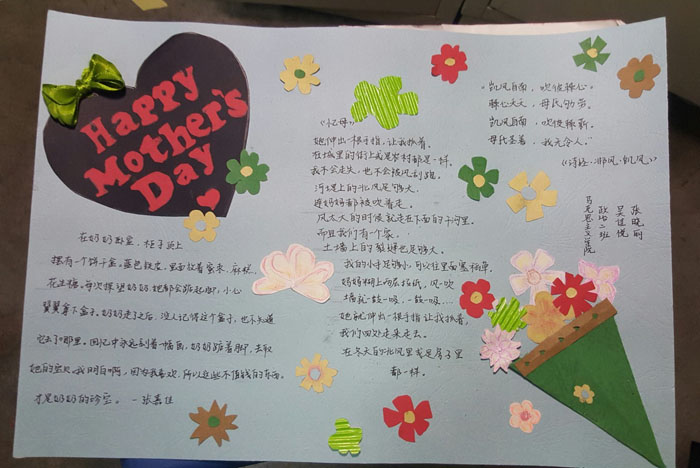 Happy
Mother's
Day
在奶奶卧室，柜子顶上
摆有一个饼干盒。蓝色铁皮，里面放着蜜枣，麻糕，
花生糖。每次探望奶奶，她都会踮起脚，小心
翼翼拿下盒子。奶奶走了之后，没人记得这个盒子，也不知道
它去了哪里。回忆中永远刻着一幅画，奶奶踮着脚，去取
她的宝贝。我明白啊，因为我喜欢，所以这些不值钱的东西，
才是奶奶的珍宝。 —张嘉佳
《忆母》
她伸出一根手指，让我抓着。
在城里的街上或是农村都是一样。
我不会走失，也不会被风刮跑。
河堤上的北风足够大，
连妈妈都被吹着走。
风太大的时候就走在下面的干河里。
而且我们有个家，
土墙上的裂缝也足够大。
我的小手足够小，可以往里面塞稻草。
妈妈糊上两层报纸，风一吹
墙就一鼓一吸，一鼓一吸……
她就伸出一根手指让我抓着，
我们四处走来走去。
在冬天的北风里或是屋子里
都一样。
"凯风自南，吹彼棘心。
棘心夭夭，母氏劬劳。
凯风自南，吹彼棘薪。
母氏圣善，我无令人。"
《诗经·邶风·凯风》
张晓丽
政治二班
马克思主义学院